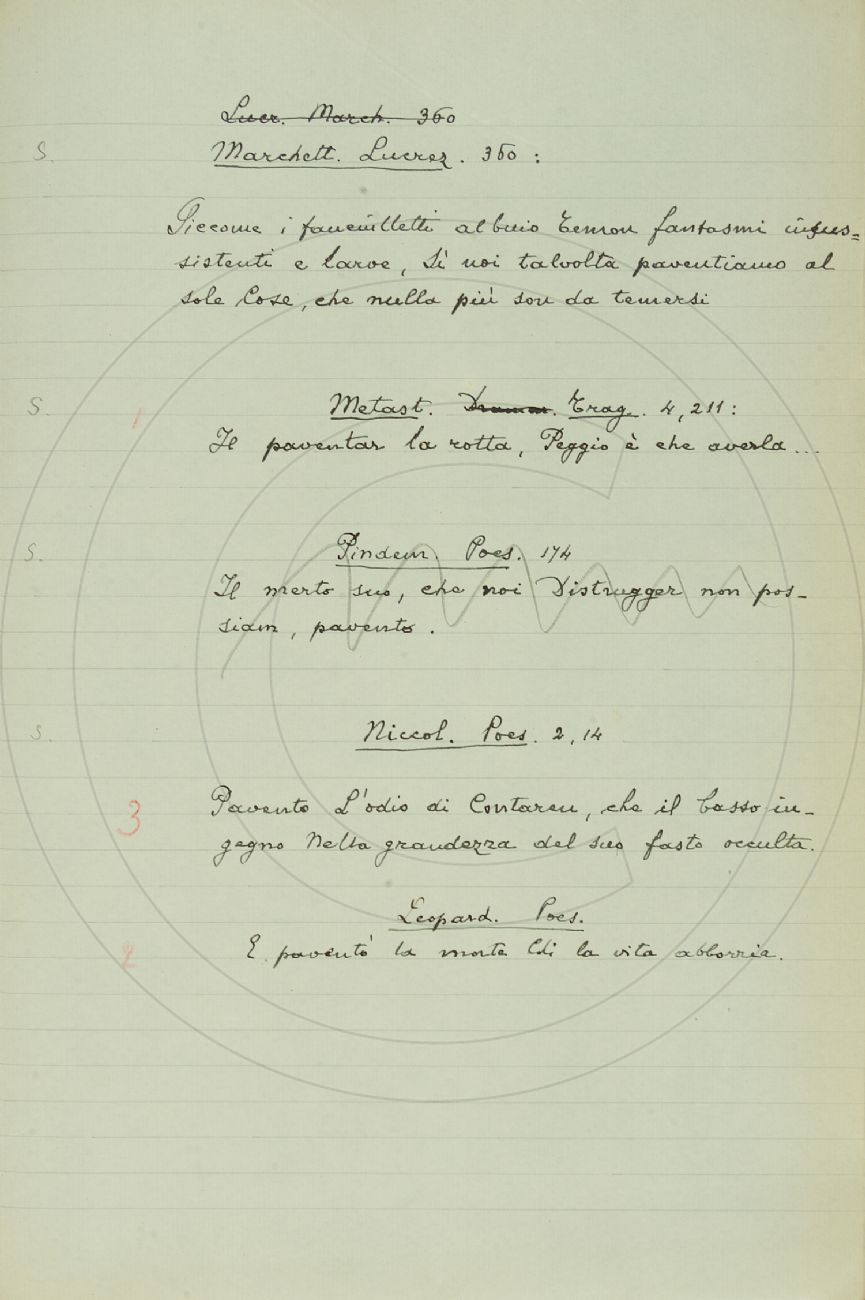 Lucr. March. 360
S. Marchett. Lucrez. 360 :
Siccome i fanciulletti al buio Temon fantasmi insus=
sistenti e larve, Sì noi talvolta paventiamo al
sole Cose, che nulla più son da temersi
S. Metast. Dramm. Trag. 4, 211 :
1
Il paventar la rotta, Peggio è che averla...
S. Pindem. Poes. 174
Il merto suo, che noi Distrugger non pos-
siam, pavento.
S. Niccol. Poes. 2, 14
3 Pavento L'odio di Contaren, che il basso in-
gegno Nella grandezza del suo fasto occulta.
Leopard. Poes.
2 E paventò la morte la vita abborrìa.